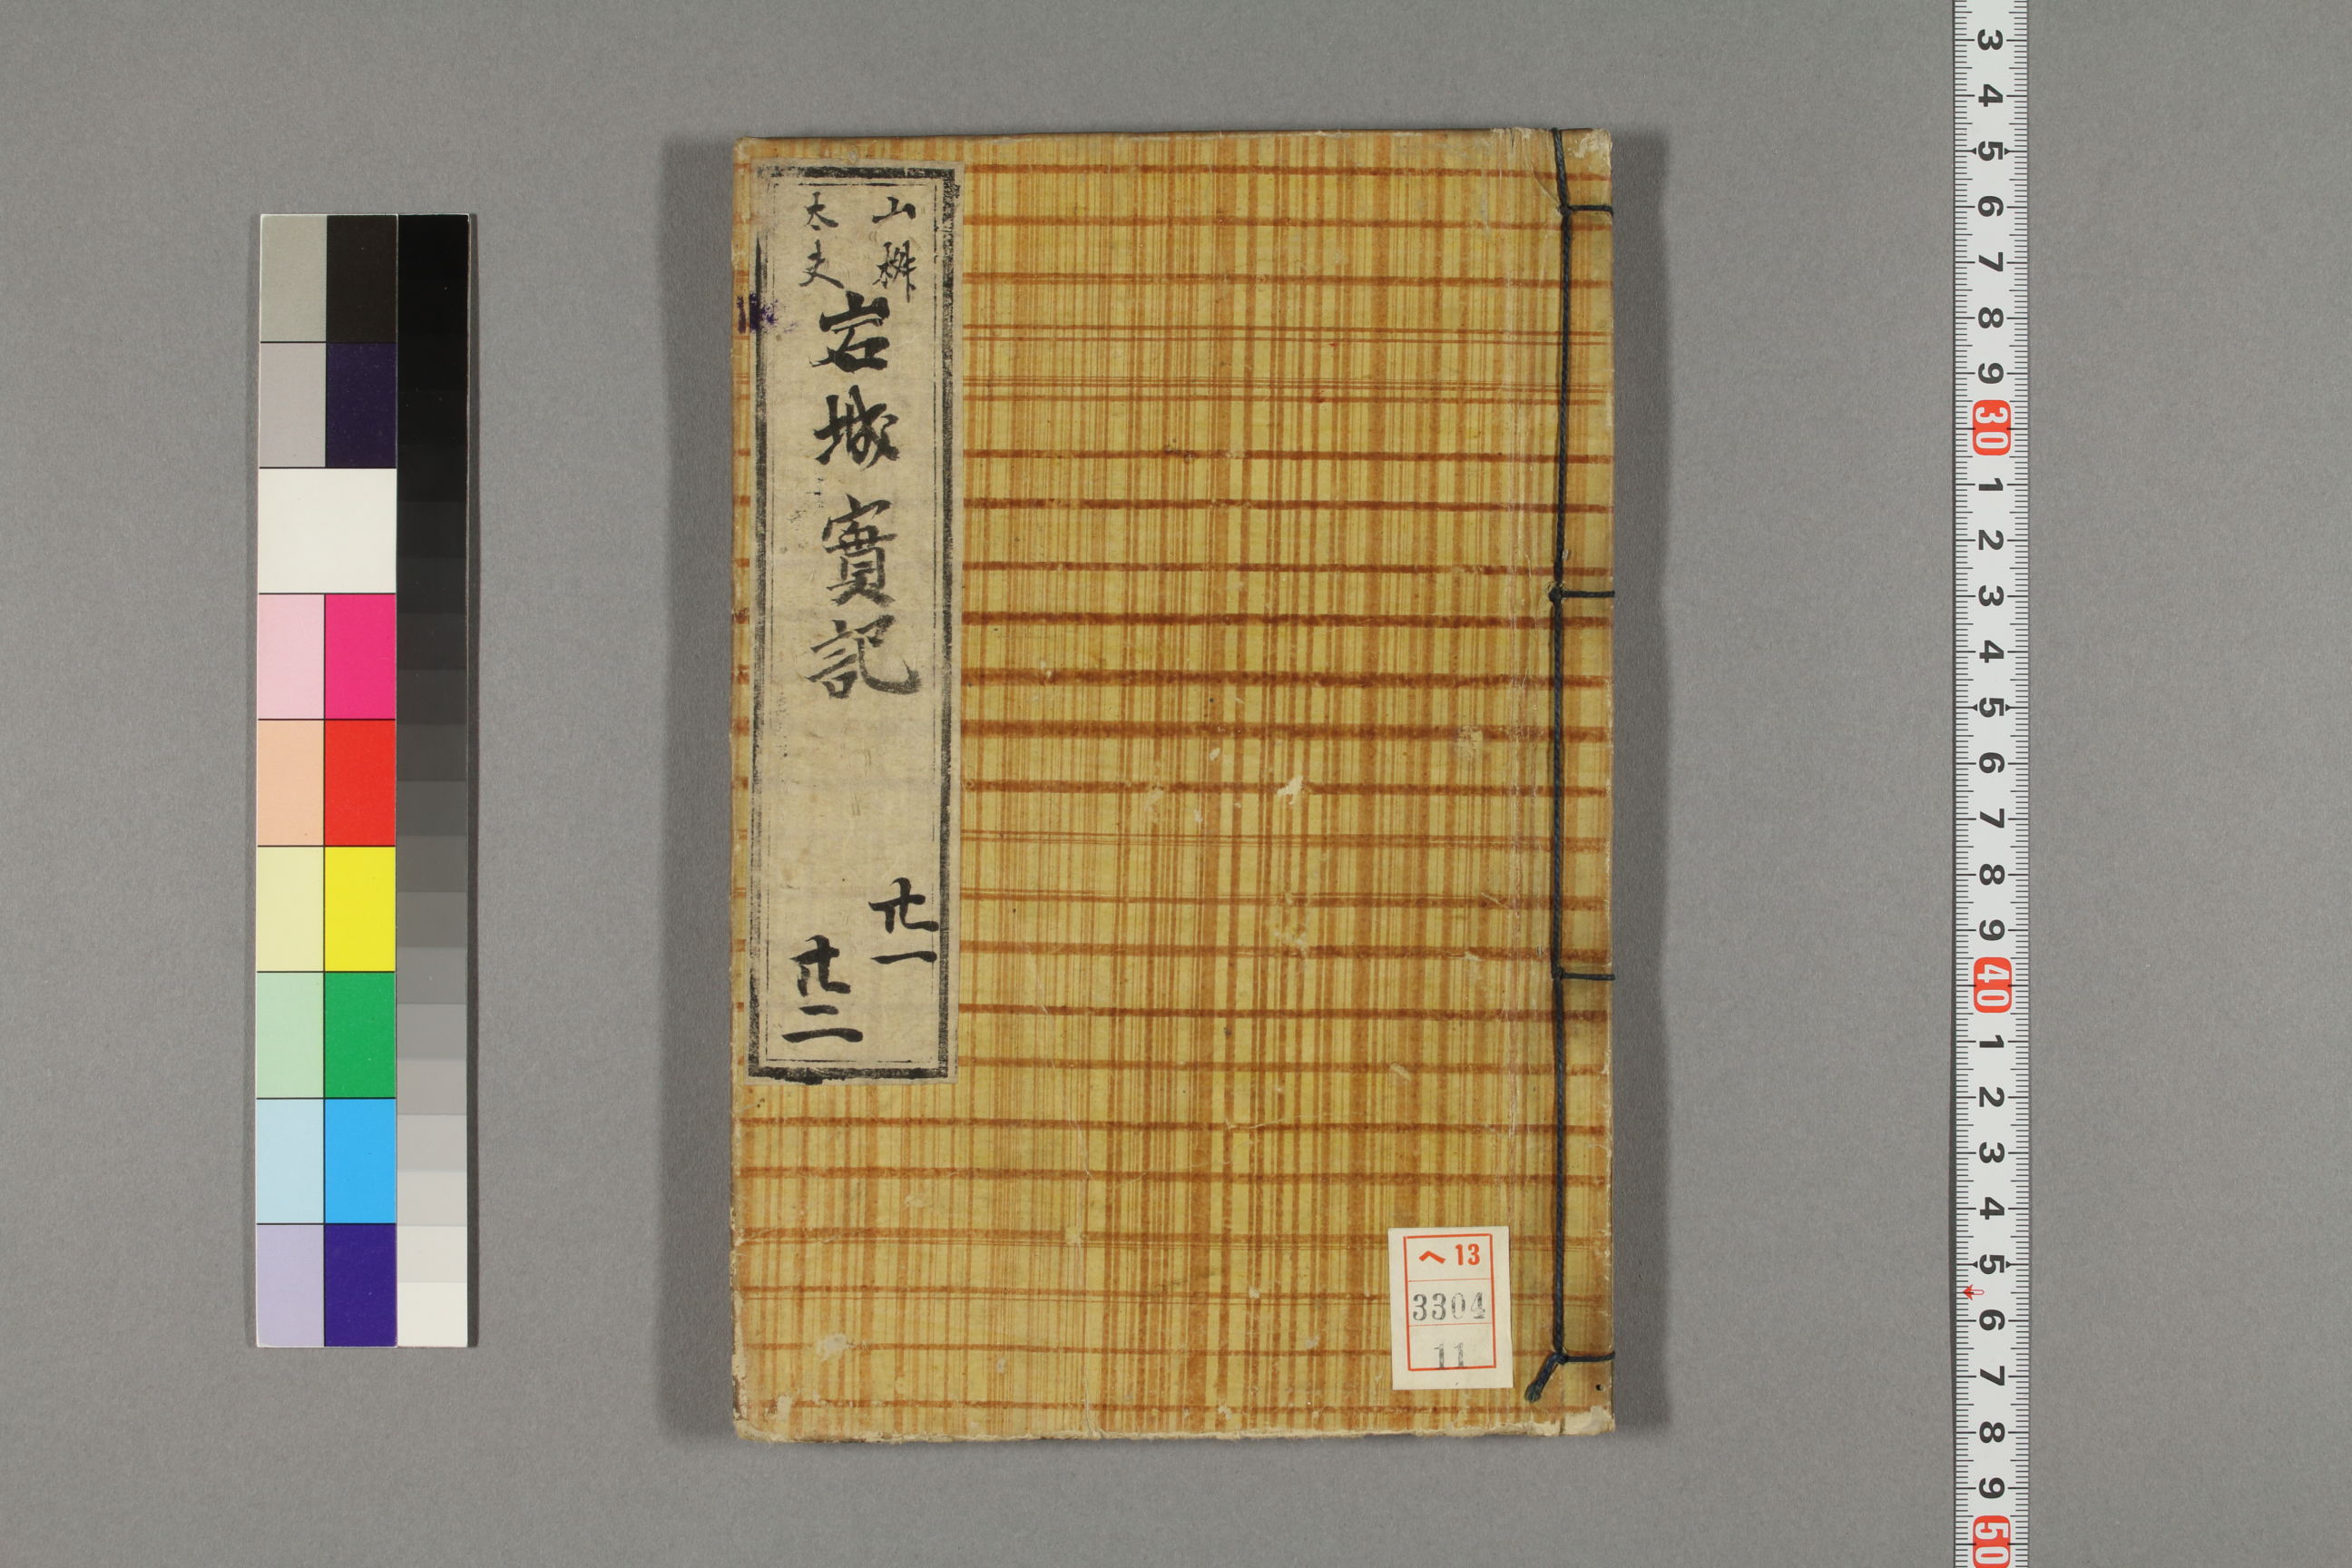 山桝
太夫
岩城實記
廿一
廿二
へ13
3304
11
3
4
5
6
7
8
9
30
1
2
3
4
5
6
7
8
9
40
1
2
3
4
5
6
7
8
9
50